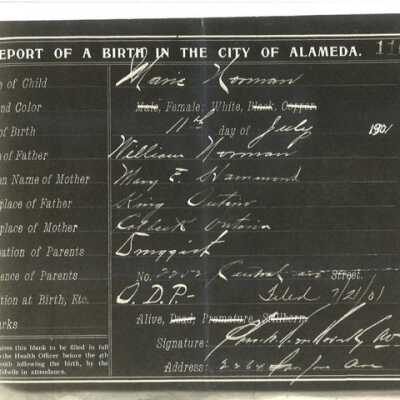 EPORT OF A BIRTH IN THE CITY OF ALAMEDA. 11
e of Child Marie Norman
nd Color Male, Female: White, Black, Copper.
of Birth 11th day of July 1901
of Father William Norman
en Name of Mother Mary E. Hammond
place of Father King
place of Mother Ontario
ation of Parents Druggist
ence of Parents No. Central ave Street.
tion at Birth, Etc. O.D.P- Filed 7/21/01
arks Alive, Dead, Premature, Stillborn.
Signature:
Address: 2264 San Jose Ave
ires this blank to be filed in full
the Health Officer before the 4th
onth following the birth, by the
idwife in attendance.